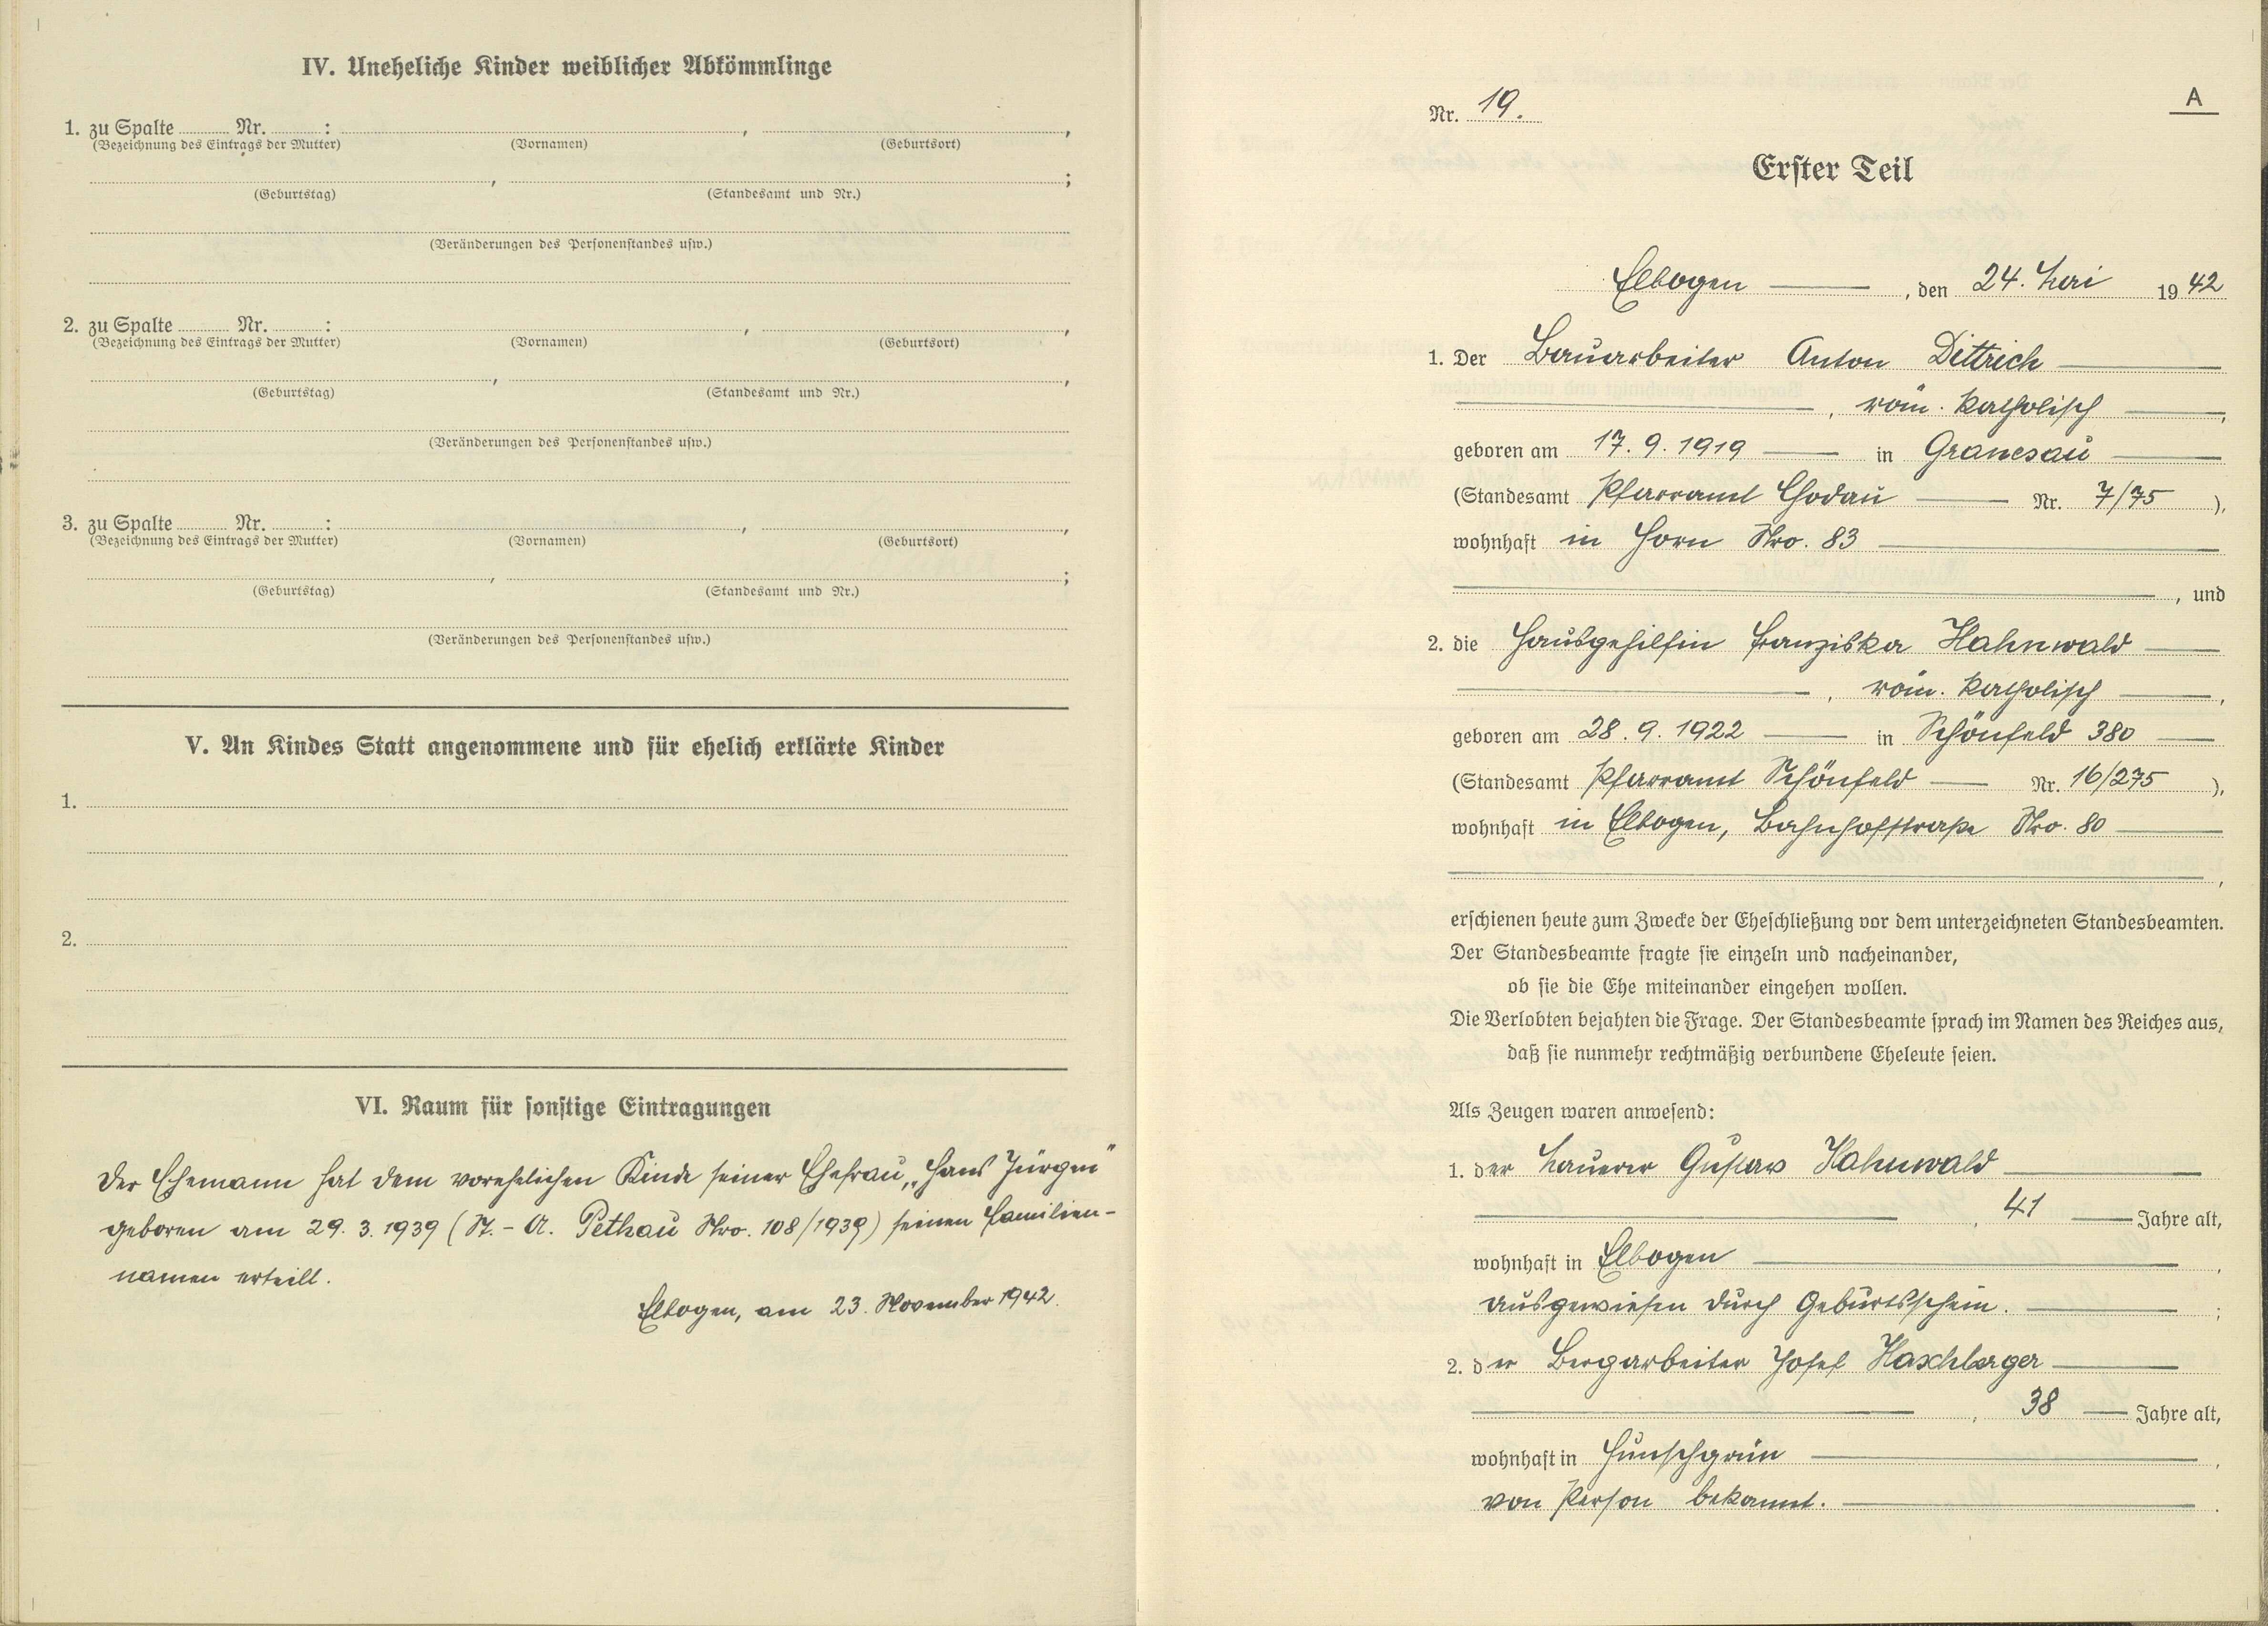 IV. Uneheliche Kinder weiblicher Abkömmlinge
1. zu Spalte ........ Nr. ........ : ........ , ........ ,
(Bezeichnung des Eintrags der Mutter) (Vornamen) (Geburtsort)
........ , ........ ;
(Geburtstag) (Standesamt und Nr.)
(Veränderungen des Personenstandes usw.)
2. zu Spalte ........ Nr. ........ : ........ , ........ ,
(Bezeichnung des Eintrags der Mutter) (Vornamen) (Geburtsort)
........ , ........ ,
(Geburtstag) (Standesamt und Nr.)
(Veränderungen des Personenstandes usw.)
3. zu Spalte ........ Nr. ........ : ........ , ........ ,
(Bezeichnung des Eintrags der Mutter) (Vornamen) (Geburtsort)
........ , ........ ;
(Geburtstag) (Standesamt und Nr.)
(Veränderungen des Personenstandes usw.)
V. An Kindes Statt angenommene und für ehelich erklärte Kinder
1.
2.
VI. Raum für sonstige Eintragungen
Der Ehemann hat dem vorehelichen Kinde seiner Ehefrau, „Hans Jürgen"
geboren am 29. 3. 1939 (St. - A. Pethau Nro. 108/1939) seinen Familien-
namen erteilt.
Elbogen, am 23. November 1942.
Nr. 19.
A
Erster Teil
Elbogen , den 24. Mai 1942
1. Der Bauarbeiter Anton Dittrich
, röm. katholisch ,
geboren am 17. 9. 1919 in Granesau
(Standesamt Pfarramt Chodau Nr. 7/75 ),
wohnhaft in Horn Nro. 83
, und
2. die Hausgehilfin Franziska Hahnwald
, röm. katholisch ,
geboren am 28. 9. 1922 in Schönfeld 380
(Standesamt Pfarramt Schönfeld Nr. 16/275 ),
wohnhaft in Elbogen, Bahnhofstraße Nro. 80
,
erschienen heute zum Zwecke der Eheschließung vor dem unterzeichneten Standesbeamten.
Der Standesbeamte fragte sie einzeln und nacheinander,
ob sie die Ehe miteinander eingehen wollen.
Die Verlobten bejahten die Frage. Der Standesbeamte sprach im Namen des Reiches aus,
daß sie nunmehr rechtmäßig verbundene Eheleute seien.
Als Zeugen waren anwesend:
1. der Maurer Gustav Hahnwald
, 41 Jahre alt,
wohnhaft in Elbogen ,
ausgewiesen durch Geburtsschein. ;
2. der Bergarbeiter Josef Haschberger
, 38 Jahre alt,
wohnhaft in Hunschgrün ,
von Person bekannt. .